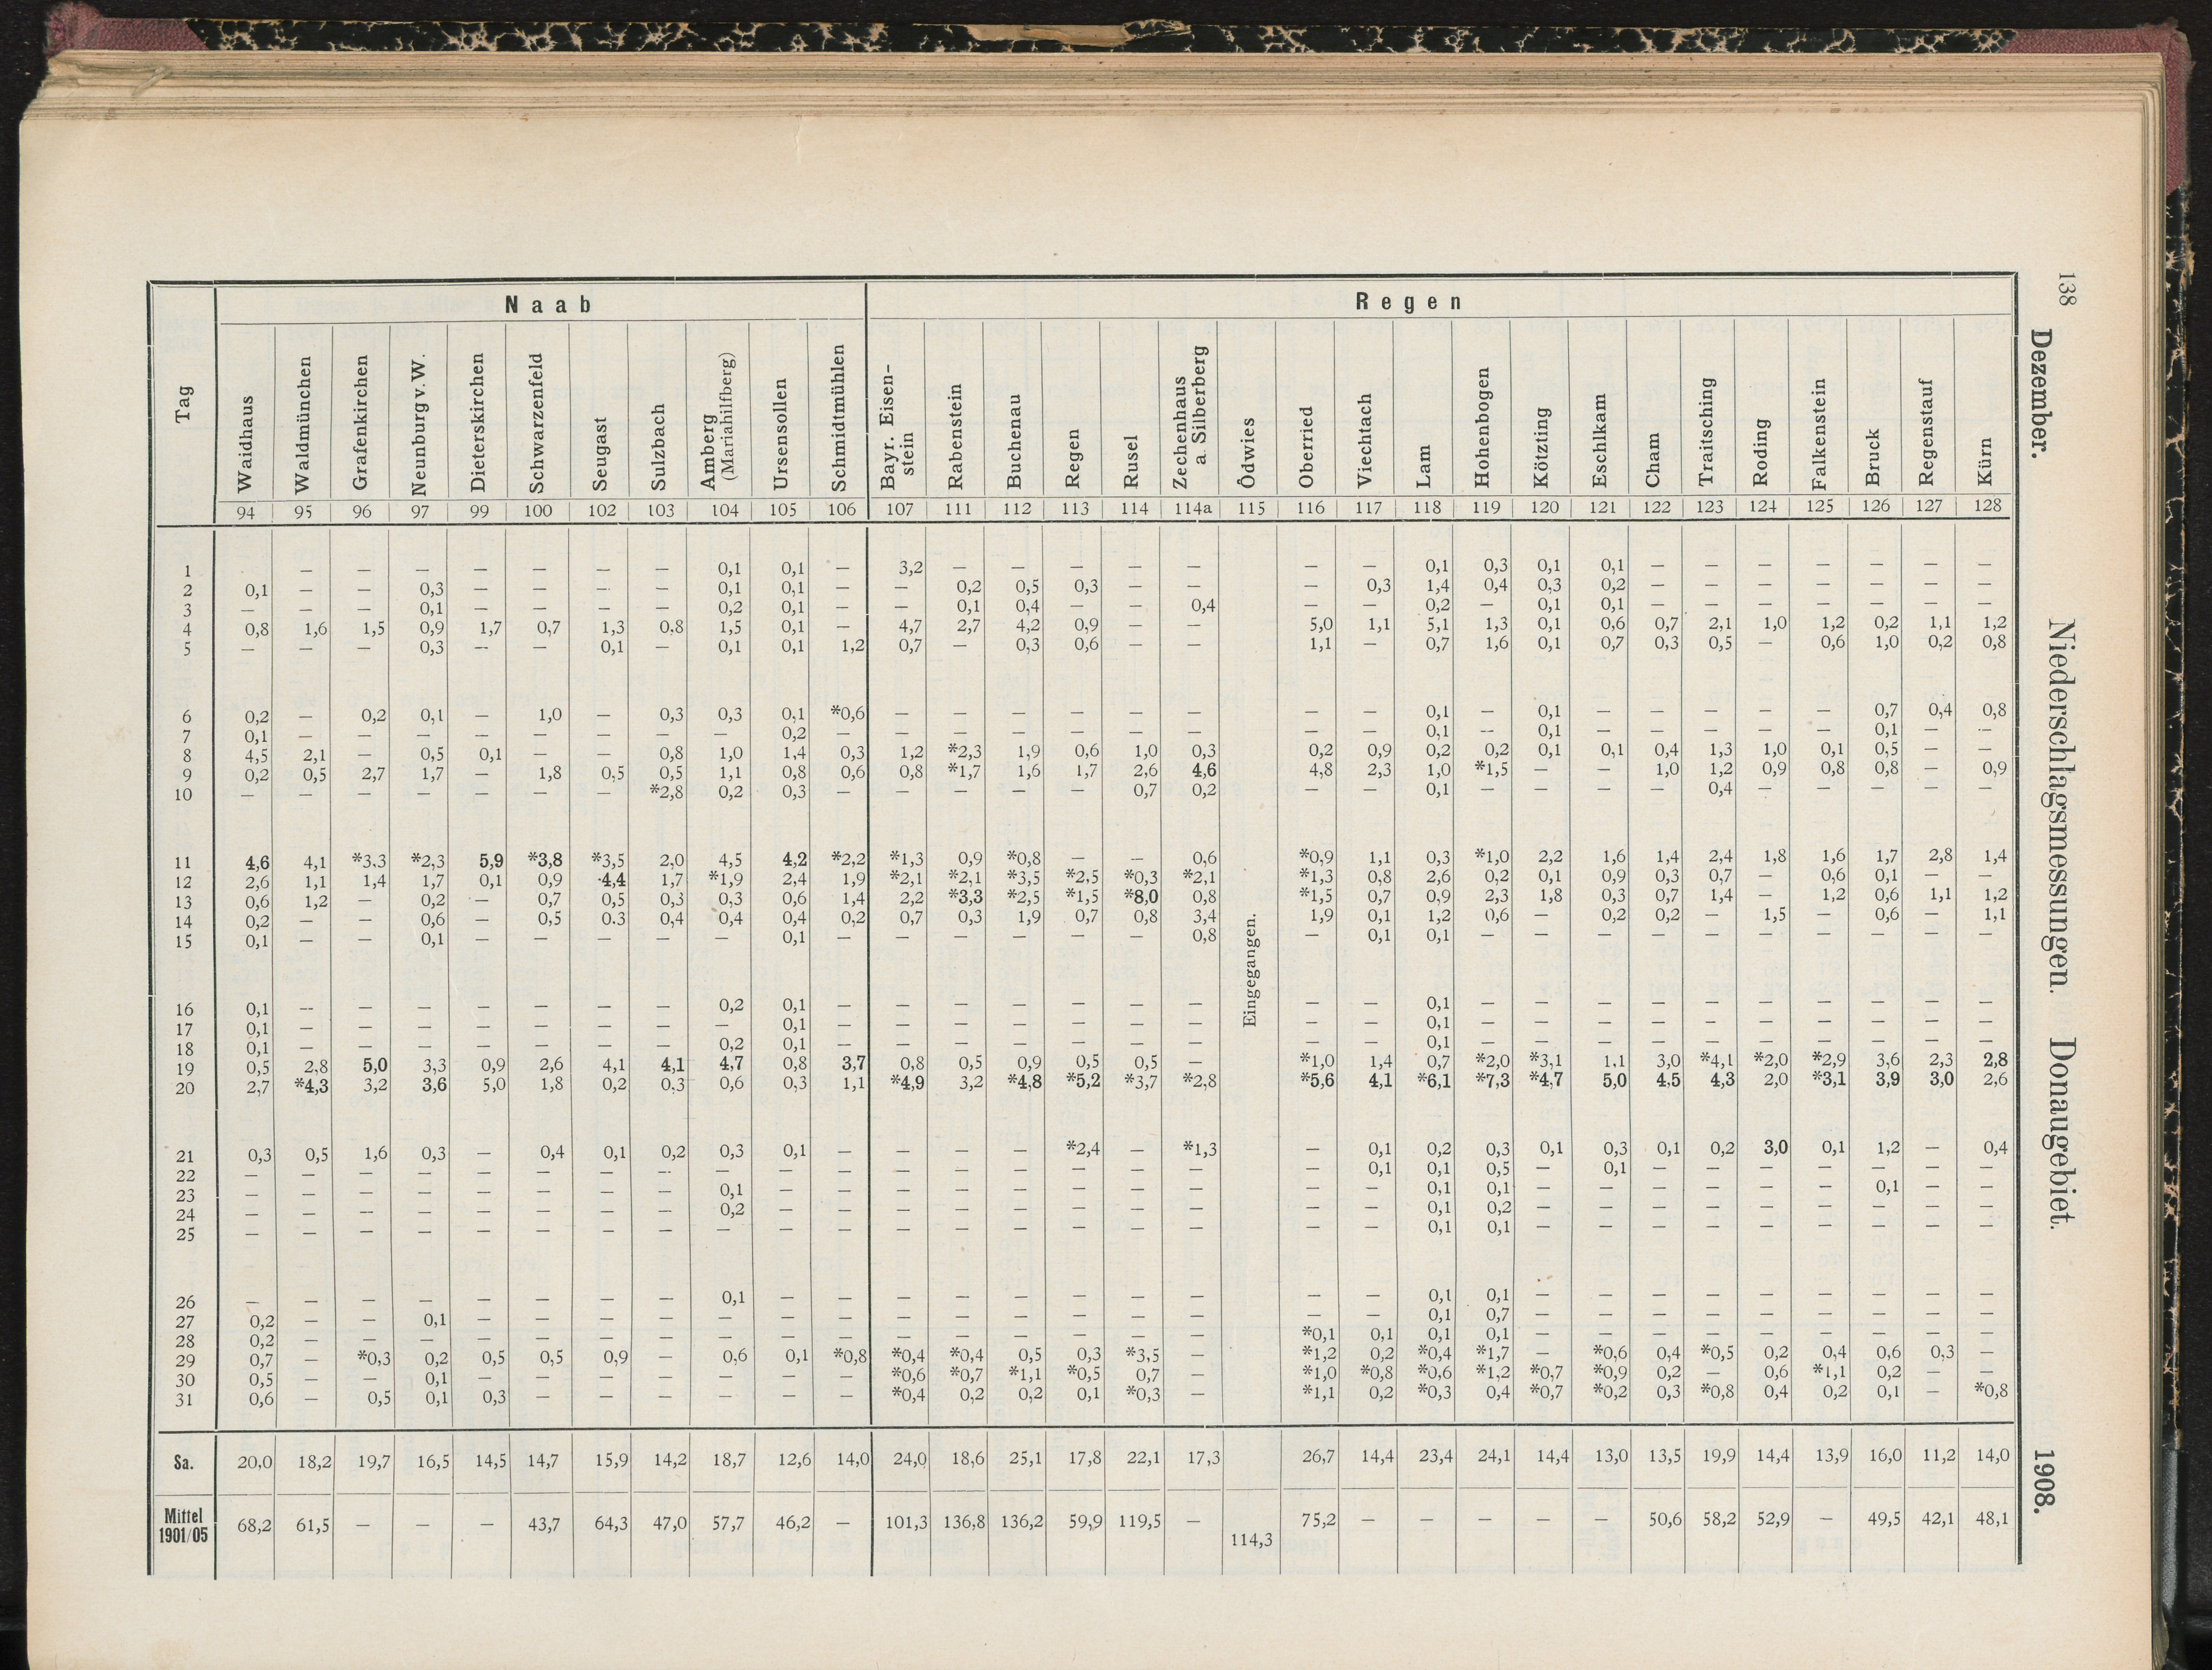 138
Dezember. Niederschlagsmessungen. Donaugebiet. 1908.
Tag | Naab | Regen
Waidhaus | Waldmünchen | Grafenkirchen | Neunburg v. W. | Dieterskirchen | Schwarzenfeld | Seugast | Sulzbach | Amberg (Mariahilfberg) | Ursensollen | Schmidtmühlen | Bayr. Eisen-stein | Rabenstein | Buchenau | Regen | Rusel | Zechenhaus a. Silberberg | Ödwies | Oberried | Viechtach | Lam | Hohenbogen | Kötzting | Eschlkam | Cham | Traitsching | Roding | Falkenstein | Bruck | Regenstauf | Kürn
94 | 95 | 96 | 97 | 99 | 100 | 102 | 103 | 104 | 105 | 106 | 107 | 111 | 112 | 113 | 114 | 114a | 115 | 116 | 117 | 118 | 119 | 120 | 121 | 122 | 123 | 124 | 125 | 126 | 127 | 128
1 | | — | — | — | — | — | — | — | 0,1 | 0,1 | — | 3,2 | — | — | — | — | — | | — | — | 0,1 | 0,3 | 0,1 | 0,1 | — | — | — | — | — | — | —
2 | 0,1 | — | — | 0,3 | — | — | — | — | 0,1 | 0,1 | — | — | 0,2 | 0,5 | 0,3 | — | — | | — | 0,3 | 1,4 | 0,4 | 0,3 | 0,2 | — | — | — | — | — | — | —
3 | — | — | — | 0,1 | — | — | — | — | 0,2 | 0,1 | — | — | 0,1 | 0,4 | — | — | 0,4 | | — | — | 0,2 | — | 0,1 | 0,1 | — | — | — | — | — | — | —
4 | 0,8 | 1,6 | 1,5 | 0,9 | 1,7 | 0,7 | 1,3 | 0,8 | 1,5 | 0,1 | — | 4,7 | 2,7 | 4,2 | 0,9 | — | — | | 5,0 | 1,1 | 5,1 | 1,3 | 0,1 | 0,6 | 0,7 | 2,1 | 1,0 | 1,2 | 0,2 | 1,1 | 1,2
5 | — | — | — | 0,3 | — | — | 0,1 | — | 0,1 | 0,1 | 1,2 | 0,7 | — | 0,3 | 0,6 | — | — | | 1,1 | — | 0,7 | 1,6 | 0,1 | 0,7 | 0,3 | 0,5 | — | 0,6 | 1,0 | 0,2 | 0,8
6 | 0,2 | — | 0,2 | 0,1 | — | 1,0 | — | 0,3 | 0,3 | 0,1 | *0,6 | — | — | — | — | — | — | | — | — | 0,1 | — | 0,1 | — | — | — | — | — | 0,7 | 0,4 | 0,8
7 | 0,1 | — | — | — | — | — | — | — | — | 0,2 | — | — | — | — | — | — | — | | — | — | 0,1 | — | 0,1 | — | — | — | — | — | 0,1 | — | —
8 | 4,5 | 2,1 | — | 0,5 | 0,1 | — | — | 0,8 | 1,0 | 1,4 | 0,3 | 1,2 | *2,3 | 1,9 | 0,6 | 1,0 | 0,3 | | 0,2 | 0,9 | 0,2 | 0,2 | 0,1 | 0,1 | 0,4 | 1,3 | 1,0 | 0,1 | 0,5 | — | —
9 | 0,2 | 0,5 | 2,7 | 1,7 | — | 1,8 | 0,5 | 0,5 | 1,1 | 0,8 | 0,6 | 0,8 | *1,7 | 1,6 | 1,7 | 2,6 | 4,6 | | 4,8 | 2,3 | 1,0 | *1,5 | — | — | 1,0 | 1,2 | 0,9 | 0,8 | 0,8 | — | 0,9
10 | — | — | — | — | — | — | — | *2,8 | 0,2 | 0,3 | — | — | — | — | — | 0,7 | 0,2 | | — | — | 0,1 | — | — | — | — | 0,4 | — | — | — | — | —
11 | 4,6 | 4,1 | *3,3 | *2,3 | 5,9 | *3,8 | *3,5 | 2,0 | 4,5 | 4,2 | *2,2 | *1,3 | 0,9 | *0,8 | — | — | 0,6 | | *0,9 | 1,1 | 0,3 | *1,0 | 2,2 | 1,6 | 1,4 | 2,4 | 1,8 | 1,6 | 1,7 | 2,8 | 1,4
12 | 2,6 | 1,1 | 1,4 | 1,7 | 0,1 | 0,9 | 4,4 | 1,7 | *1,9 | 2,4 | 1,9 | *2,1 | *2,1 | *3,5 | *2,5 | *0,3 | *2,1 | | *1,3 | 0,8 | 2,6 | 0,2 | 0,1 | 0,9 | 0,3 | 0,7 | — | 0,6 | 0,1 | — | —
13 | 0,6 | 1,2 | — | 0,2 | — | 0,7 | 0,5 | 0,3 | 0,3 | 0,6 | 1,4 | 2,2 | *3,3 | *2,5 | *1,5 | *8,0 | 0,8 | | *1,5 | 0,7 | 0,9 | 2,3 | 1,8 | 0,3 | 0,7 | 1,4 | — | 1,2 | 0,6 | 1,1 | 1,2
14 | 0,2 | — | — | 0,6 | — | 0,5 | 0.3 | 0,4 | 0,4 | 0,4 | 0,2 | 0,7 | 0,3 | 1,9 | 0,7 | 0,8 | 3,4 | | 1,9 | 0,1 | 1,2 | 0,6 | — | 0,2 | 0,2 | — | 1,5 | — | 0,6 | — | 1,1
15 | 0,1 | — | — | 0,1 | — | — | — | — | — | 0,1 | — | — | — | — | — | — | 0,8 | Eingegangen. | — | 0,1 | 0,1 | — | — | — | — | — | — | — | — | — | —
16 | 0,1 | — | — | — | — | — | — | — | 0,2 | 0,1 | — | — | — | — | — | — | — | | — | — | 0,1 | — | — | — | — | — | — | — | — | — | —
17 | 0,1 | — | — | — | — | — | — | — | — | 0,1 | — | — | — | — | — | — | — | | — | — | 0,1 | — | — | — | — | — | — | — | — | — | —
18 | 0,1 | — | — | — | — | — | — | — | 0,2 | 0,1 | — | — | — | — | — | — | — | | — | — | 0,1 | — | — | — | — | — | — | — | — | — | —
19 | 0,5 | 2,8 | 5,0 | 3,3 | 0,9 | 2,6 | 4,1 | 4,1 | 4,7 | 0,8 | 3,7 | 0,8 | 0,5 | 0,9 | 0,5 | 0,5 | — | | *1,0 | 1,4 | 0,7 | *2,0 | *3,1 | 1,1 | 3,0 | *4,1 | *2,0 | *2,9 | 3,6 | 2,3 | 2,8
20 | 2,7 | *4,3 | 3,2 | 3,6 | 5,0 | 1,8 | 0,2 | 0,3 | 0,6 | 0,3 | 1,1 | *4,9 | 3,2 | *4,8 | *5,2 | *3,7 | *2,8 | | *5,6 | 4,1 | *6,1 | *7,3 | *4,7 | 5,0 | 4,5 | 4,3 | 2,0 | *3,1 | 3,9 | 3,0 | 2,6
21 | 0,3 | 0,5 | 1,6 | 0,3 | — | 0,4 | 0,1 | 0,2 | 0,3 | 0,1 | — | — | — | — | *2,4 | — | *1,3 | | — | 0,1 | 0,2 | 0,3 | 0,1 | 0,3 | 0,1 | 0,2 | 3,0 | 0,1 | 1,2 | — | 0,4
22 | — | — | — | — | — | — | — | — | — | — | — | — | — | — | — | — | — | | — | 0,1 | 0,1 | 0,5 | — | 0,1 | — | — | — | — | — | — | —
23 | — | — | — | — | — | — | — | — | 0,1 | — | — | — | — | — | — | — | — | | — | — | 0,1 | 0,1 | — | — | — | — | — | — | 0,1 | — | —
24 | — | — | — | — | — | — | — | — | 0,2 | — | — | — | — | — | — | — | — | | — | — | 0,1 | 0,2 | — | — | — | — | — | — | — | — | —
25 | — | — | — | — | — | — | — | — | — | — | — | — | — | — | — | — | — | | — | — | 0,1 | 0,1 | — | — | — | — | — | — | — | — | —
26 | — | — | — | — | — | — | — | — | 0,1 | — | — | — | — | — | — | — | — | | — | — | 0,1 | 0,1 | — | — | — | — | — | — | — | — | —
27 | 0,2 | — | — | 0,1 | — | — | — | — | — | — | — | — | — | — | — | — | — | | — | — | 0,1 | 0,7 | — | — | — | — | — | — | — | — | —
28 | 0,2 | — | — | — | — | — | — | — | — | — | — | — | — | — | — | — | — | | *0,1 | 0,1 | 0,1 | 0,1 | — | — | — | — | — | — | — | — | —
29 | 0,7 | — | *0,3 | 0,2 | 0,5 | 0,5 | 0,9 | — | 0,6 | 0,1 | *0,8 | *0,4 | *0,4 | 0,5 | 0,3 | *3,5 | — | | *1,2 | 0,2 | *0,4 | *1,7 | — | *0,6 | 0,4 | *0,5 | 0,2 | 0,4 | 0,6 | 0,3 | —
30 | 0,5 | — | — | 0,1 | — | — | — | — | — | — | — | *0,6 | *0,7 | *1,1 | *0,5 | 0,7 | — | | *1,0 | *0,8 | *0,6 | *1,2 | *0,7 | *0,9 | 0,2 | — | 0,6 | *1,1 | 0,2 | — | —
31 | 0,6 | — | 0,5 | 0,1 | 0,3 | — | — | — | — | — | — | *0,4 | 0,2 | 0,2 | 0,1 | *0,3 | — | | *1,1 | 0,2 | *0,3 | 0,4 | *0,7 | *0,2 | 0,3 | *0,8 | 0,4 | 0,2 | 0,1 | — | *0,8
Sa. | 20,0 | 18,2 | 19,7 | 16,5 | 14,5 | 14,7 | 15,9 | 14,2 | 18,7 | 12,6 | 14,0 | 24,0 | 18,6 | 25,1 | 17,8 | 22,1 | 17,3 | | 26,7 | 14,4 | 23,4 | 24,1 | 14,4 | 13,0 | 13,5 | 19,9 | 14,4 | 13,9 | 16,0 | 11,2 | 14,0
Mittel 1901/05 | 68,2 | 61,5 | — | — | — | 43,7 | 64,3 | 47,0 | 57,7 | 46,2 | — | 101,3 | 136,8 | 136,2 | 59,9 | 119,5 | — | 114,3 | 75,2 | — | — | — | — | — | 50,6 | 58,2 | 52,9 | — | 49,5 | 42,1 | 48,1